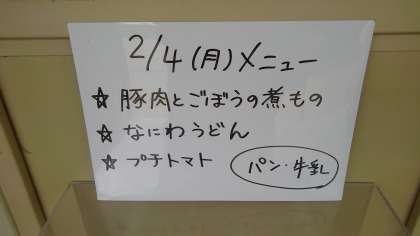 2/4(月)メニュー
☆ 豚肉とごぼうの煮もの
☆ なにわうどん
☆ プチトマト
パン・牛乳